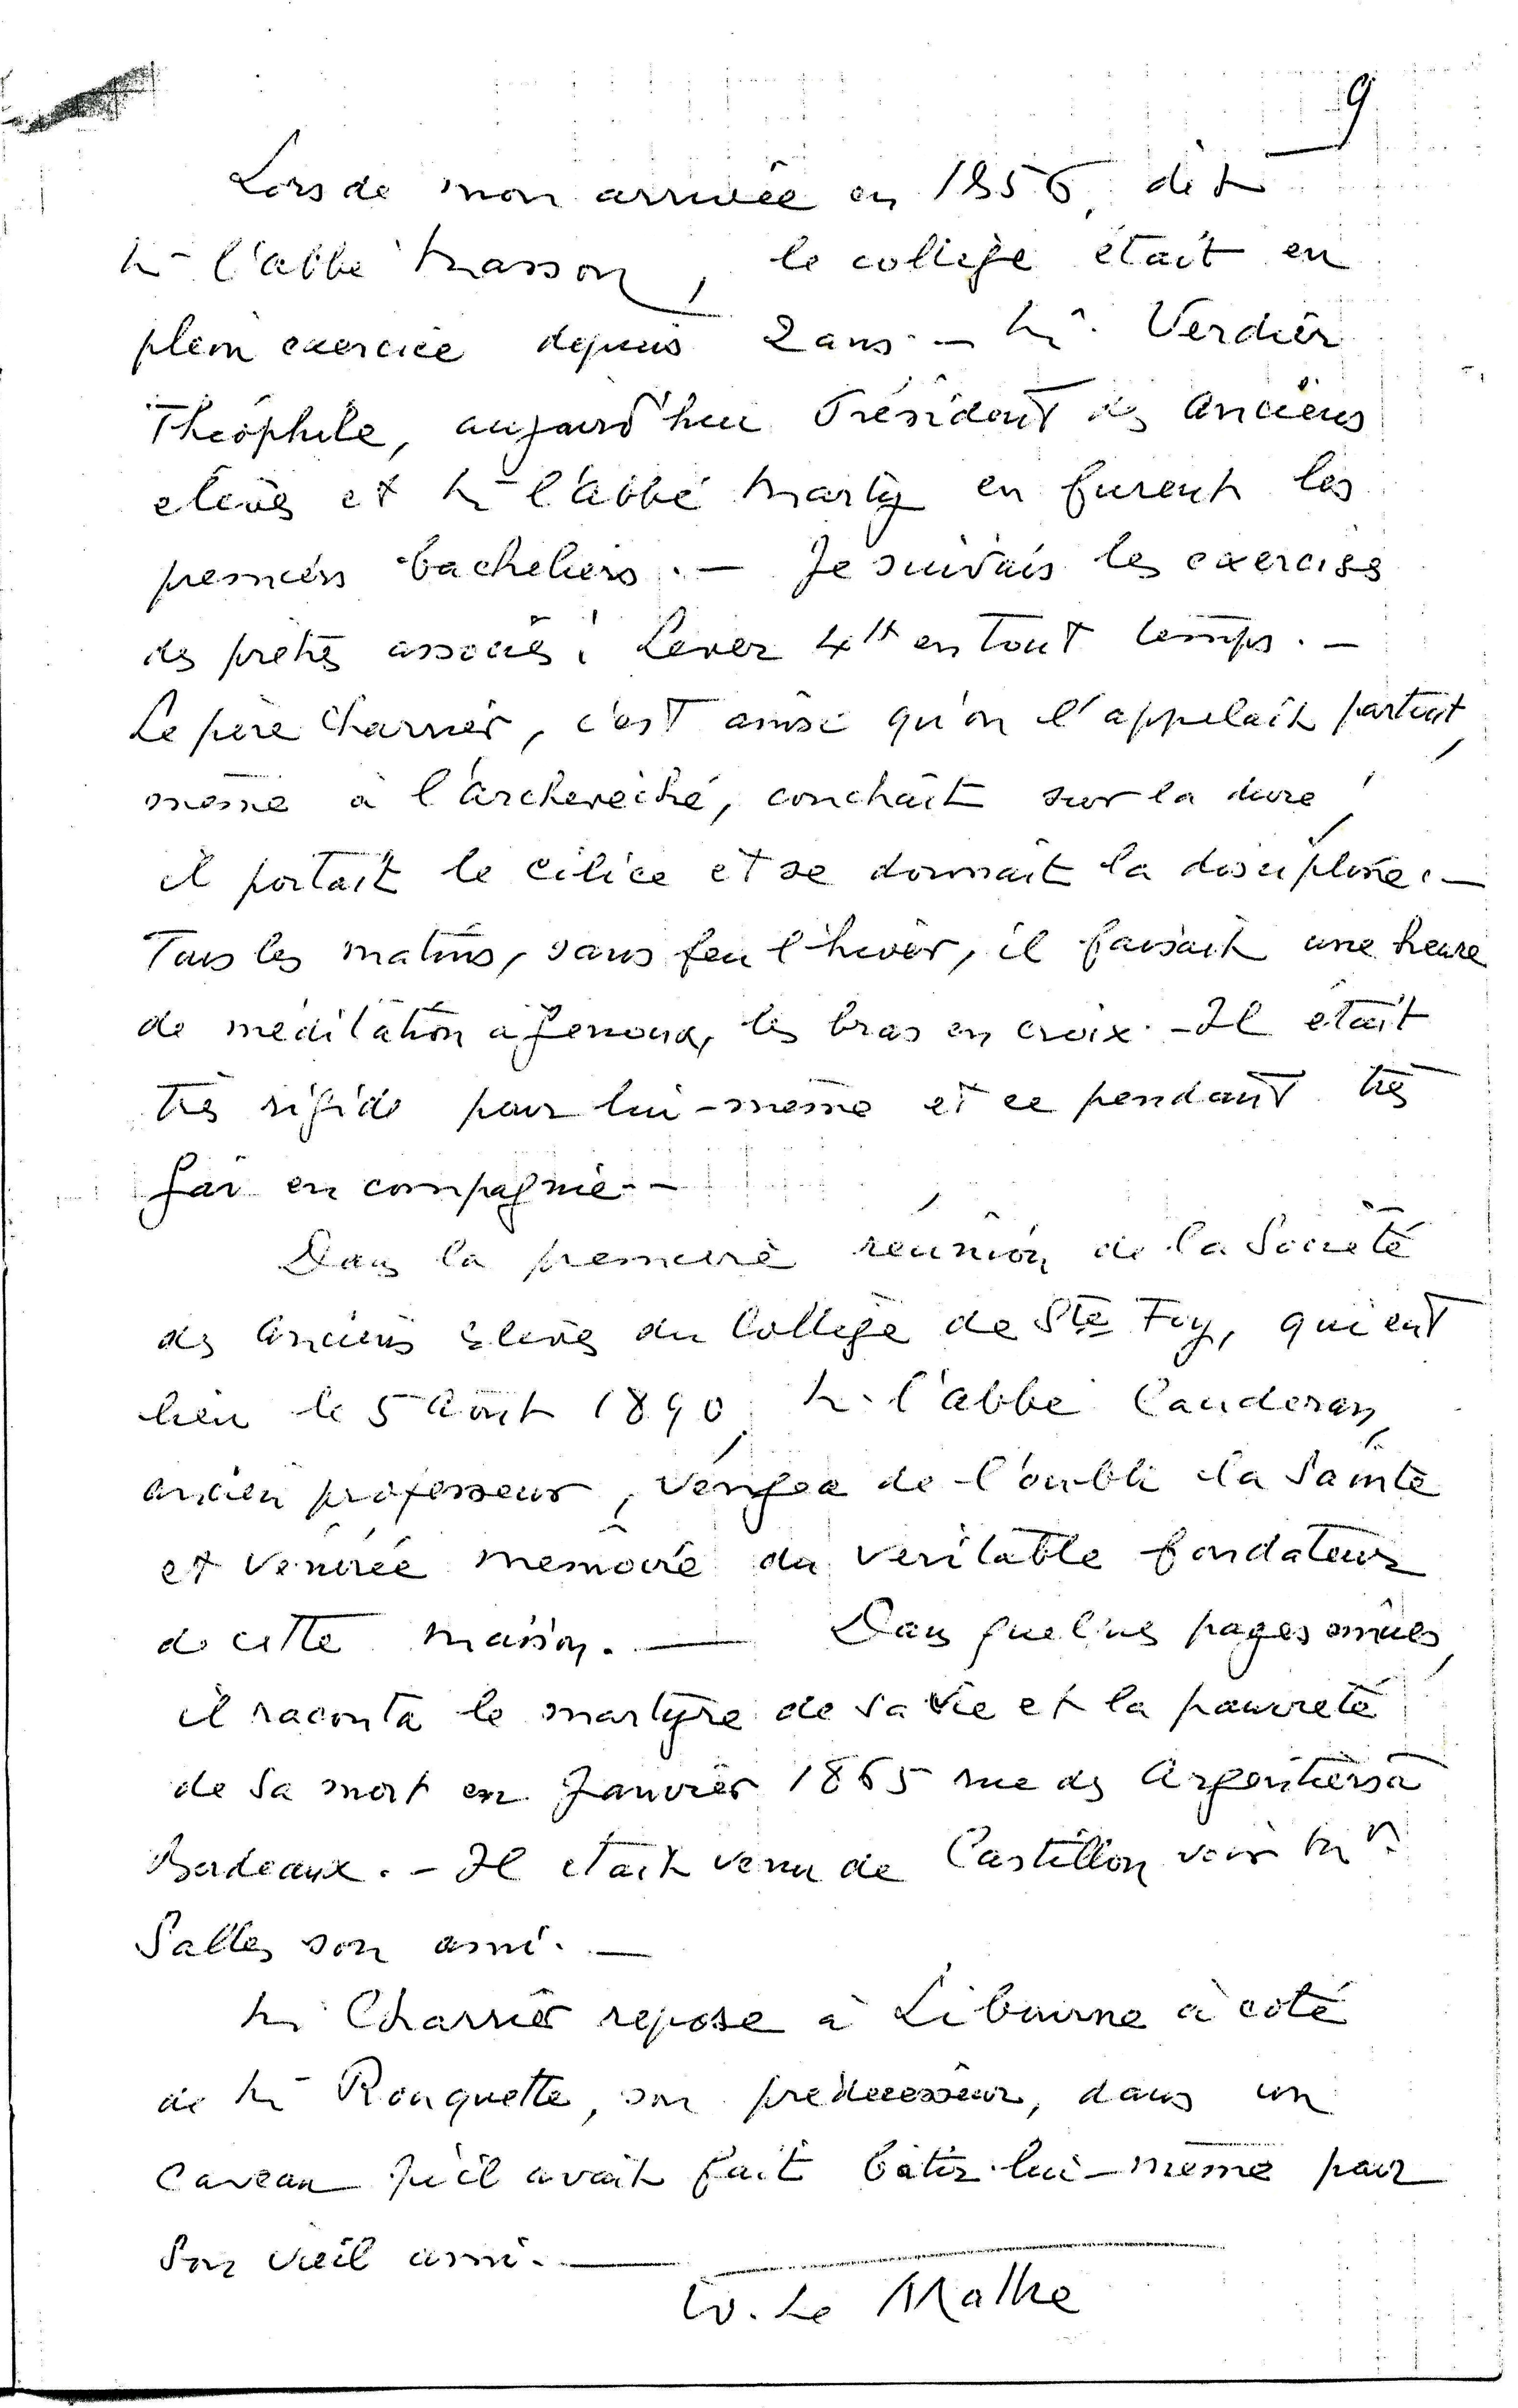 9
Lors de mon arrivée en 1856, dit
Mr l'abbé Masson, le collège était en
plein exercice depuis 2 ans. — Mr. Verdier
Théophile, aujourd'hui Président des Anciens
élèves et Mr l'abbé Marty en furent les
premiers bacheliers. — Je suivais les exercises
des prêtres associés : Lever 4h en tout temps. —
Le père Charrier, c'est ainsi qu'on l'appelait partout,
même à l'archevêché, couchait sur la dure,
il portait le cilice et se donnait la discipline. —
Tous les matins, sans feu l'hiver, il faisait une heure
de méditation à genoux, les bras en croix. — Il était
très rigide pour lui-même et cependant très
gai en compagnie. —
Dans la première réunion de la Société
des Anciens élèves du Collège de Ste Foy, qui eut
lieu le 5 Août 1890, Mr l'abbé Cauderan,
ancien professeur, vengea de l'oubli la Sainte
et vénérée mémoire du véritable fondateur
de cette maison. — Dans quelques pages émues,
il raconta le martyre de sa vie et la pauvreté
de sa mort en Janvier 1865 rue des Argentiers à
Bordeaux. — Il était venu de Castillon voir Mr.
Salles son ami. —
Mr Charrier repose à Libourne à côté
de Mr Rouquette, son prédécesseur, dans un
caveau qu'il avait fait bâtir lui-même pour
son vieil ami. —
W. Le Mathe